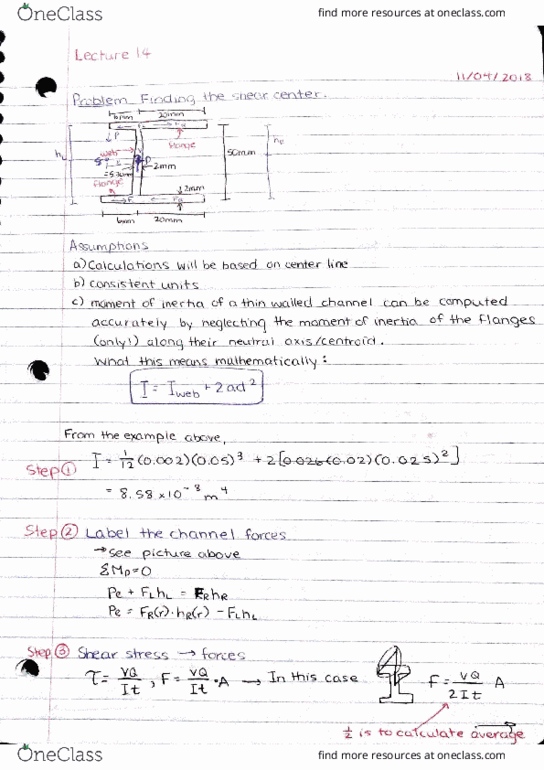 OneClass
find more resources at oneclass.com
Lecture 14
11/04/2018
Problem Finding the shear center.
6mm 20mm
P
flange
web
h
50mm
2mm
flange
2mm
6mm 20mm
Assumptions
a) Calculations will be based on center line
b) consistent units
c) moment of inertia of a thin walled channel can be computed
accurately by neglecting the moment of inertia of the flanges
(only!) along their neutral axis/centroid.
What this means mathematically:
I = Iweb + 2ad²
From the example above,
Step ① I = 1/12 (0.002)(0.05)³ + 2[0.026(0.02)(0.025)²]
= 8.58 × 10⁻⁸ m⁴
Step ② Label the channel forces
→ see picture above
ΣMD = 0
Pe + FLhL = FRhR
Pe = FR(r)·hR(r) - FLhL
Step ③ Shear stress → forces
τ = VQ/It , F = VQ/It · A → In this case F = VQ/2It A
½ is to calculate average
OneClass
find more resources at oneclass.com